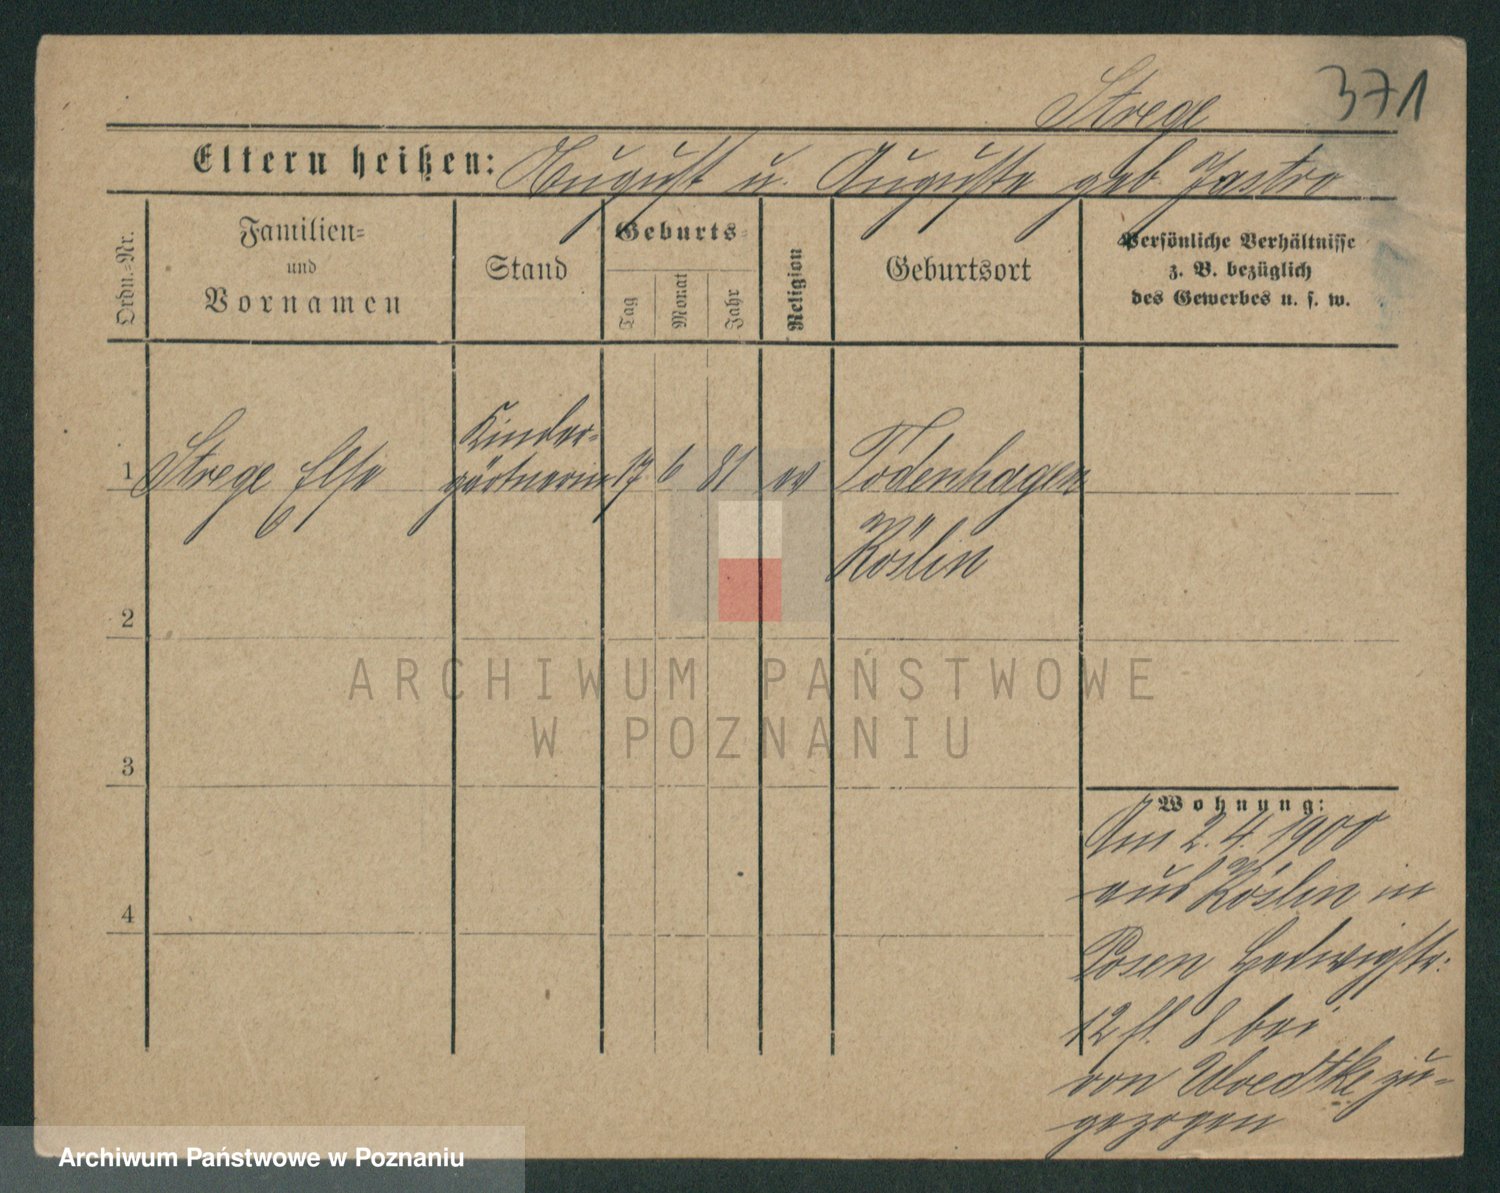 Strege 371
Eltern heißen: August u. Auguste geb. Jastro
Ordn.-Nr.
Familien-
und
Vornamen
Stand
Geburts-
Tag
Monat
Jahr
Religion
Geburtsort
Persönliche Verhältnisse
z. B. bezüglich
des Gewerbes u. s. w.
1 Strege Else
Kinder-
gärtnerin
17 6 81 ev
Todenhagen
Köslin
2
3
4
Wohnung:
Am 2.4.1900
aus Köslin in
Posen Hedwigstr.
12 8 bei
von Woedtke zu-
gezogen
ARCHIWUM PAŃSTWOWE
W POZNANIU
Archiwum Państwowe w Poznaniu